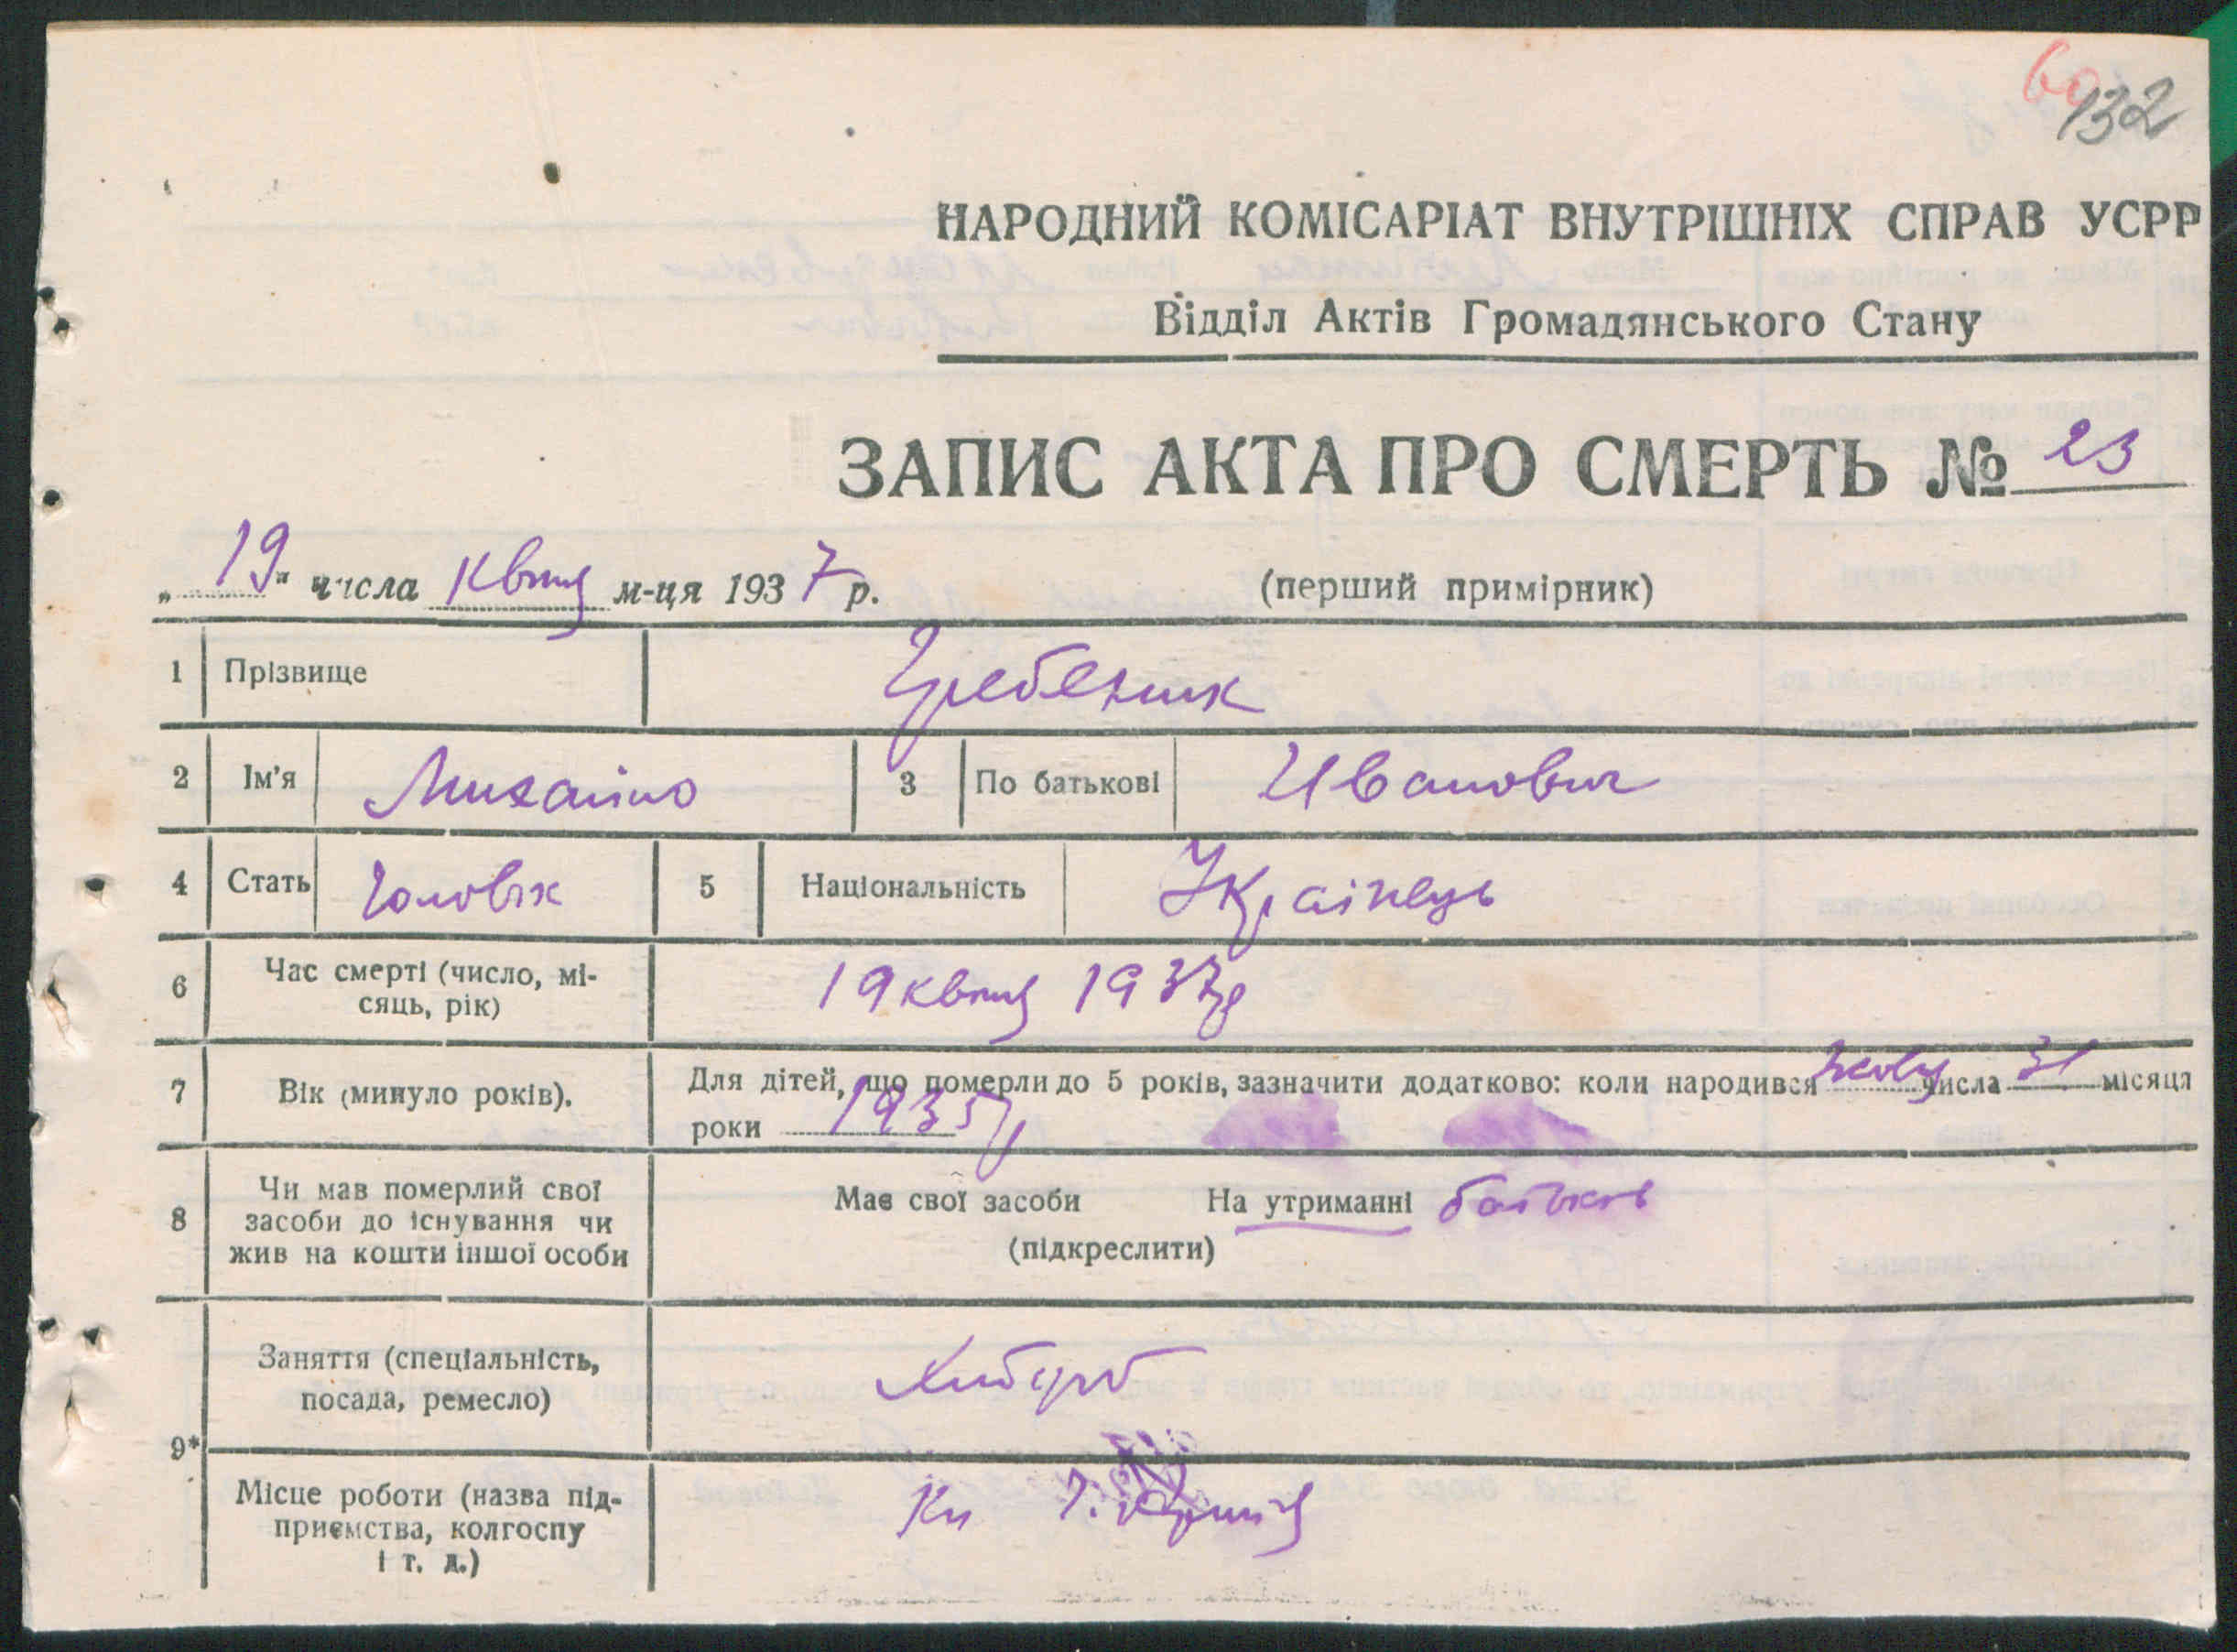 132
НАРОДНИЙ КОМІСАРІАТ ВНУТРІШНІХ СПРАВ УСРР
Відділ Актів Громадянського Стану
ЗАПИС АКТА ПРО СМЕРТЬ № 23
„ 19 " числа квтця м-ця 1937 р. (перший примірник)
1 Прізвище Гребеник
2 Ім'я Михайло 3 По батькові Иванович
4 Стать Чоловік 5 Національність Українець
6 Час смерті (число, мі-
сяць, рік) 19 квтця 1937р
7 Вік (минуло років). Для дітей, що померли до 5 років, зазначити додатково: коли народився числа 31 місяця
роки 1935р
8 Чи мав померлий свої
засоби до існування чи
жив на кошти іншої особи
Має свої засоби На утриманні батьків
(підкреслити)
Заняття (спеціальність,
посада, ремесло) Хлібороб
9*
Місце роботи (назва під-
приємства, колгоспу
і т. д.)